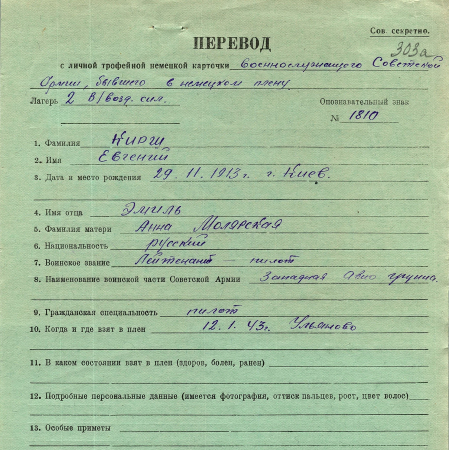 Сов. секретно.
303а
ПЕРЕВОД
с личной трофейной немецкой карточки военнослужащего Советской
Армии, бывшего в немецком плену
Лагерь 2 В/возд. сил.
Опознавательный знак
№ 1810
1. Фамилия Киргш
2. Имя Евгений
3. Дата и место рождения 29. 11. 1913 г. Киев.
4. Имя отца Эмиль
5. Фамилия матери Анна Молярская
6. Национальность русский
7. Воинское звание Лейтенант – пилот
8. Наименование воинской части Советской Армии Западная Авио группа.
9. Гражданская специальность пилот
10. Когда и где взят в плен 12. 1. 43г. Ульяново
11. В каком состоянии взят в плен (здоров, болен, ранен)
12. Подробные персональные данные (имеется фотография, оттиск пальцев, рост, цвет волос)
13. Особые приметы